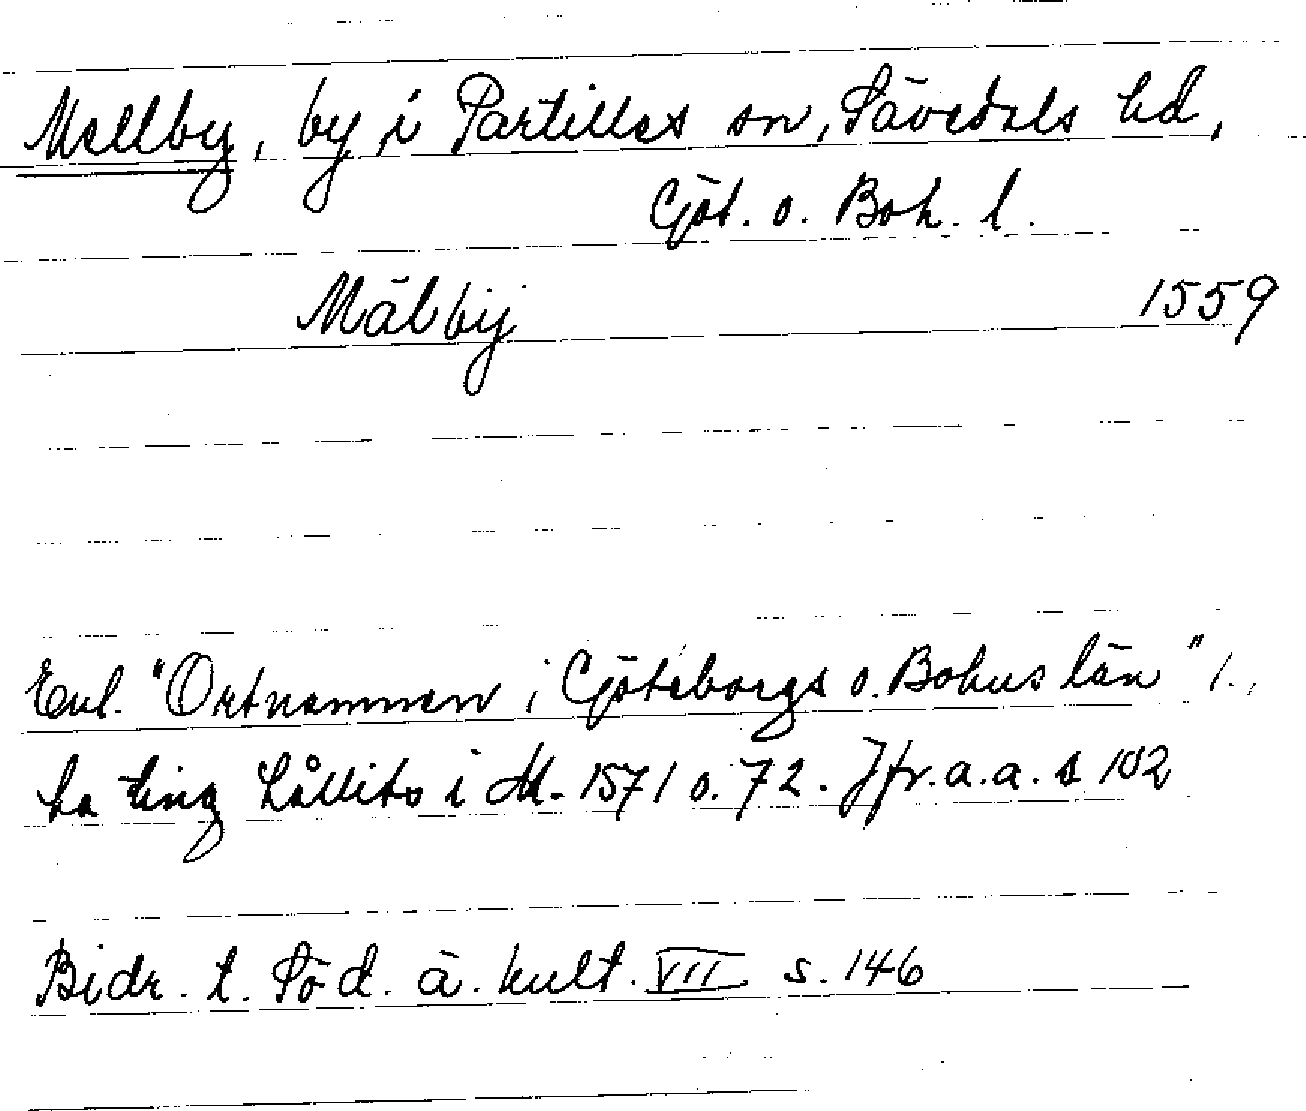 Mellby, by i Partilles sn, Sävedals hd,
Göt. o. Boh. l.
Mälbÿ 1559
Enl. "Ortnamnen i Göteborgs o. Bohus län" 1.,
ha ting hållits i M. 1571 o. 72. Jfr. a. a. s 102
Bidr. t. Söd. ä. kult. VII s. 146